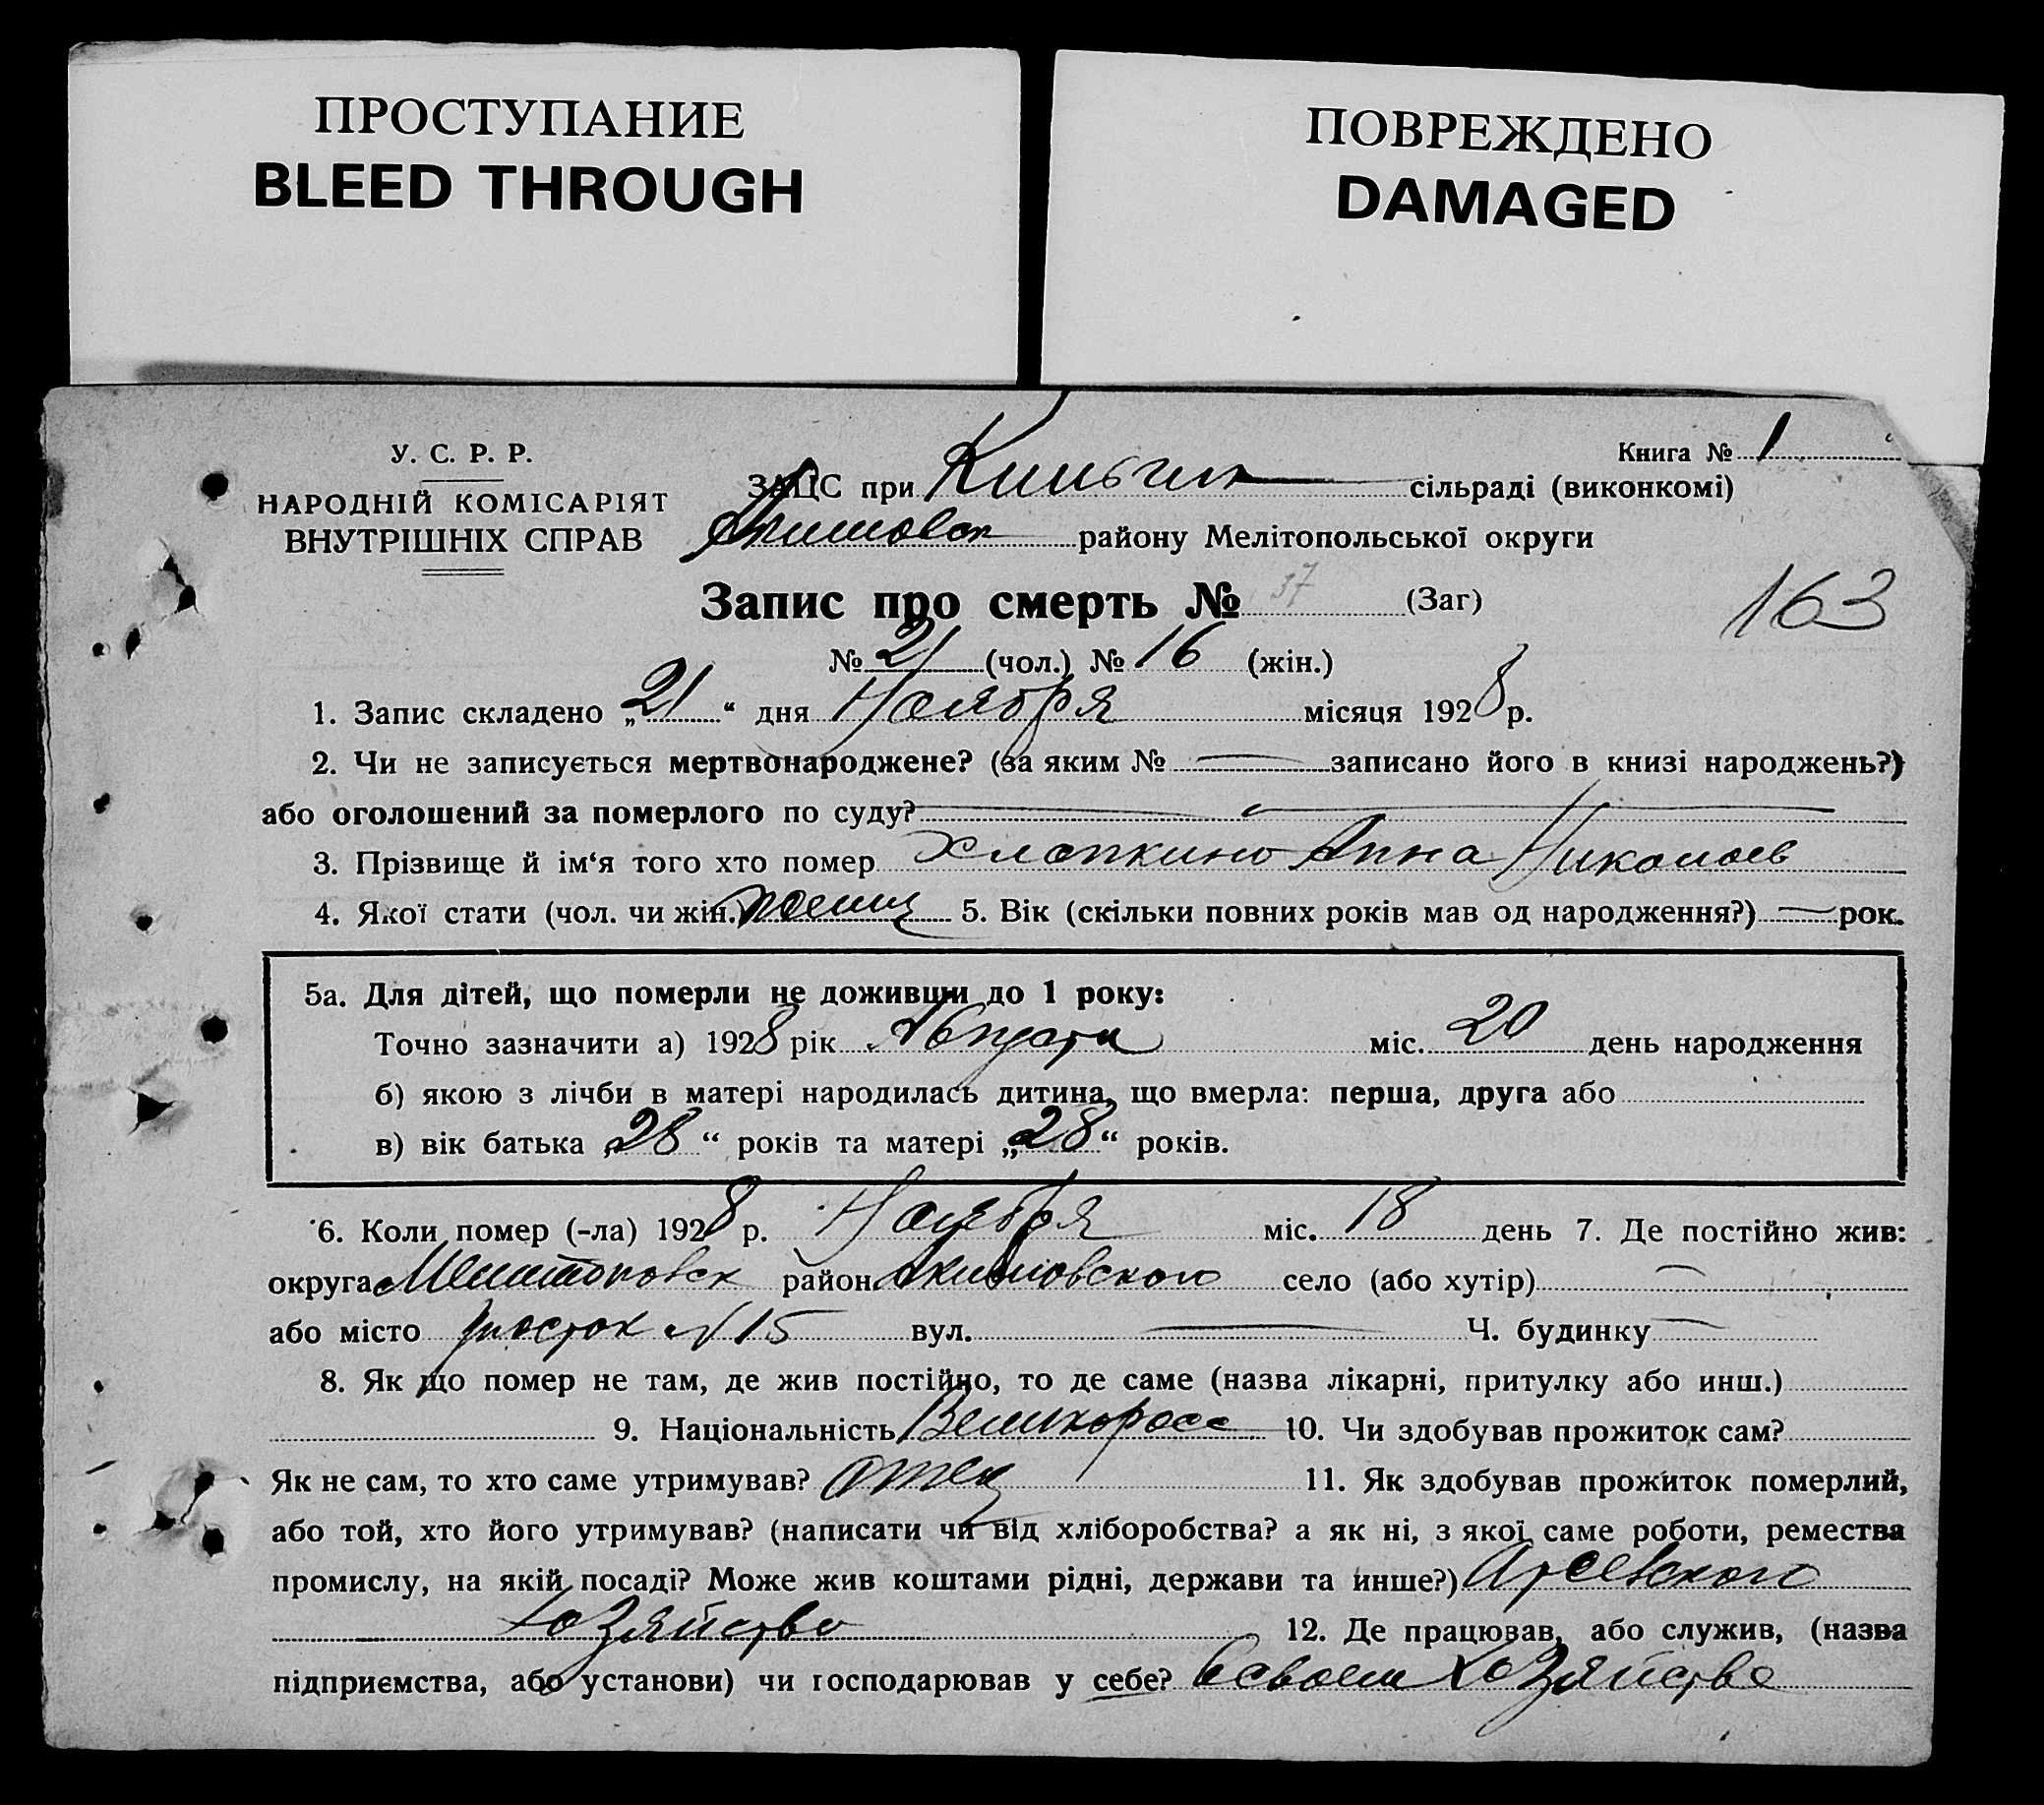 ПРОСТУПАНИЕ
BLEED THROUGH
ПОВРЕЖДЕНО
DAMAGED
У. С. Р. Р.
НАРОДНІЙ КОМІСАРІЯТ
ВНУТРІШНІХ СПРАВ
Книга № 1
ЗАЦС при сільраді (виконкомі)
району Мелітопольської округи
Запис про смерть № 37 (Заг)
163
№ 21 (чол.) № 16 (жін.)
1. Запис складено „21“ дня Ноября місяця 1928 р.
2. Чи не записується мертвонароджене? (за яким № — записано його в книзі народжень?)
або оголошений за померлого по суду? —
3. Прізвище й ім‘я того хто помер Анна Николаев
4. Якої стати (чол. чи жін.) 5. Вік (скільки повних років мав од народження?) — рок.
5а. Для дітей, що померли не доживши до 1 року:
Точно зазначити а) 1928 рік Августа міс. 20 день народження
б) якою з лічби в матері народилась дитина, що вмерла: перша, друга або
в) вік батька „28“ років та матері „28“ років.
6. Коли помер (-ла) 1928 р. Ноября міс. 18 день 7. Де постійно жив:
округа Мелитоповск район Акимовского село (або хутір) —
або місто участок № 15 вул. — Ч. будинку —
8. Як що помер не там, де жив постійно, то де саме (назва лікарні, притулку або инш.)
9. Національність Великоросс 10. Чи здобував прожиток сам?
Як не сам, то хто саме утримував? отец 11. Як здобував прожиток померлий,
або той, хто його утримував? (написати чи від хліборобства? а як ні, з якої саме роботи, ремества
промислу, на якій посаді? Може жив коштами рідні, держави та инше?)
хозяйство 12. Де працював, або служив, (назва
підприємства, або установи) чи господарював у себе? в своем хозяйстве